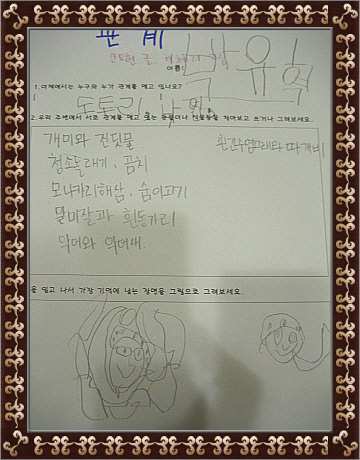 관계
안도현 글,
이름: 박유혁
1. 이책에서는 누구와 누가 관계를 맺고 있나요?
도토리와 낙엽
2. 우리 주변에서 서로 관계를 맺고 있는 동물이나 식물들을 찾아보고 쓰거나 그려보세요.
개미와 진딧물 흰긴수염고래와 따개비
청소놀래기, 곰치
모나카리해삼, 숨이고기
말미잘과 흰동가리
악어와 악어새
을 읽고 나서 가장 기억에 남는 장면을 그림으로 그려보세요.